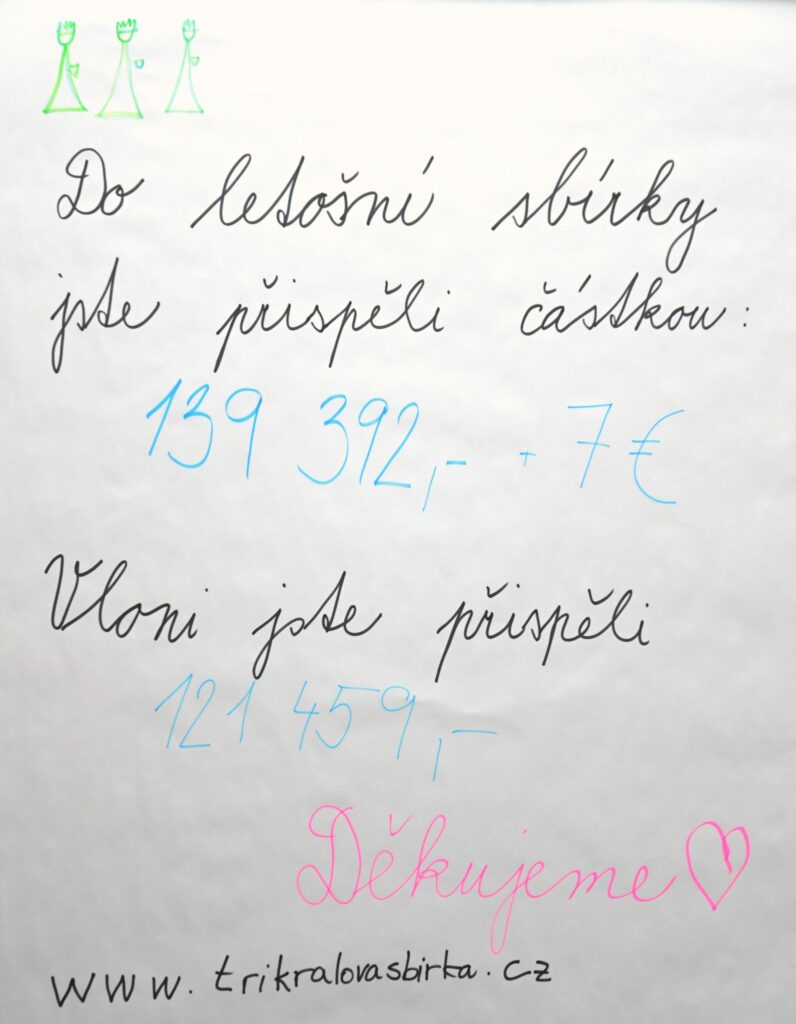 Do letošní sbírky
jste přispěli částkou:
139 392,- + 7 €
Vloni jste přispěli
121 459,-
Děkujeme ♡
www.trikralovasbirka.cz